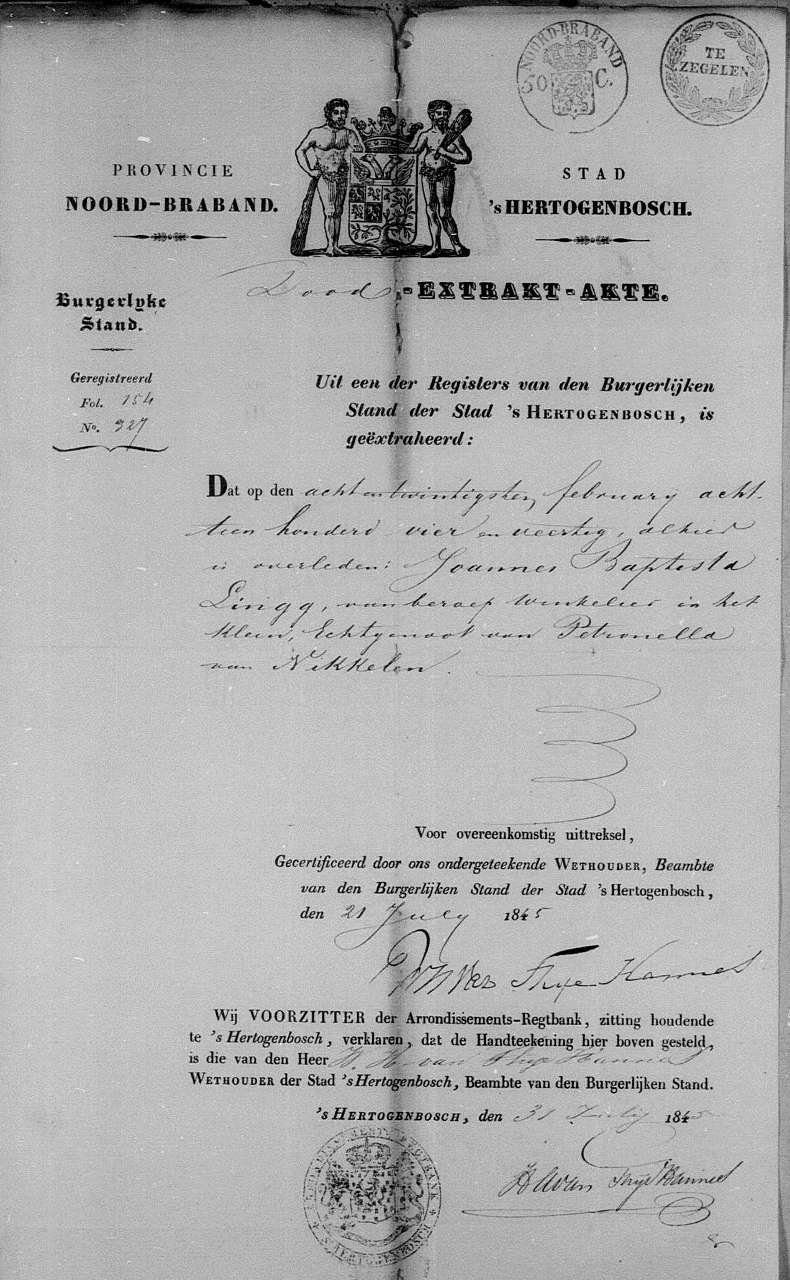 NOORD-BRABAND
50 C.
TE
ZEGELEN
PROVINCIE
NOORD-BRABAND.
STAD
'sHERTOGENBOSCH.
Burgerlyke
Stand.
Dood-EXTRAKT-AKTE.
Geregistreerd
Fol. 154
No. 327
Uit een der Registers van den Burgerlijken
Stand der Stad 's HERTOGENBOSCH, is
geëxtraheerd:
Dat op den achtentwintigsten february acht-
tien honderd vier en veertig, alhier
is overleden: Joannes Baptista
Lingg, van beroep winkelier in het
klein, Echtgenoot van Petronella
van Nikkelen.
Voor overeenkomstig uittreksel,
Gecertificeerd door ons ondergeteekende WETHOUDER, Beambte
van den Burgerlijken Stand der Stad 's Hertogenbosch,
den 21 July 1845
van Thye Hannes
Wij VOORZITTER der Arrondissements-Regtbank, zitting houdende
te 's Hertogenbosch, verklaren, dat de Handteekening hier boven gesteld,
is die van den Heer van Thye Hannes
WETHOUDER der Stad 's Hertogenbosch, Beambte van den Burgerlijken Stand.
's HERTOGENBOSCH, den 31 July 1845
van Thye Hannes
ARRONDISSEMENTS REGTBANK
'S HERTOGENBOSCH